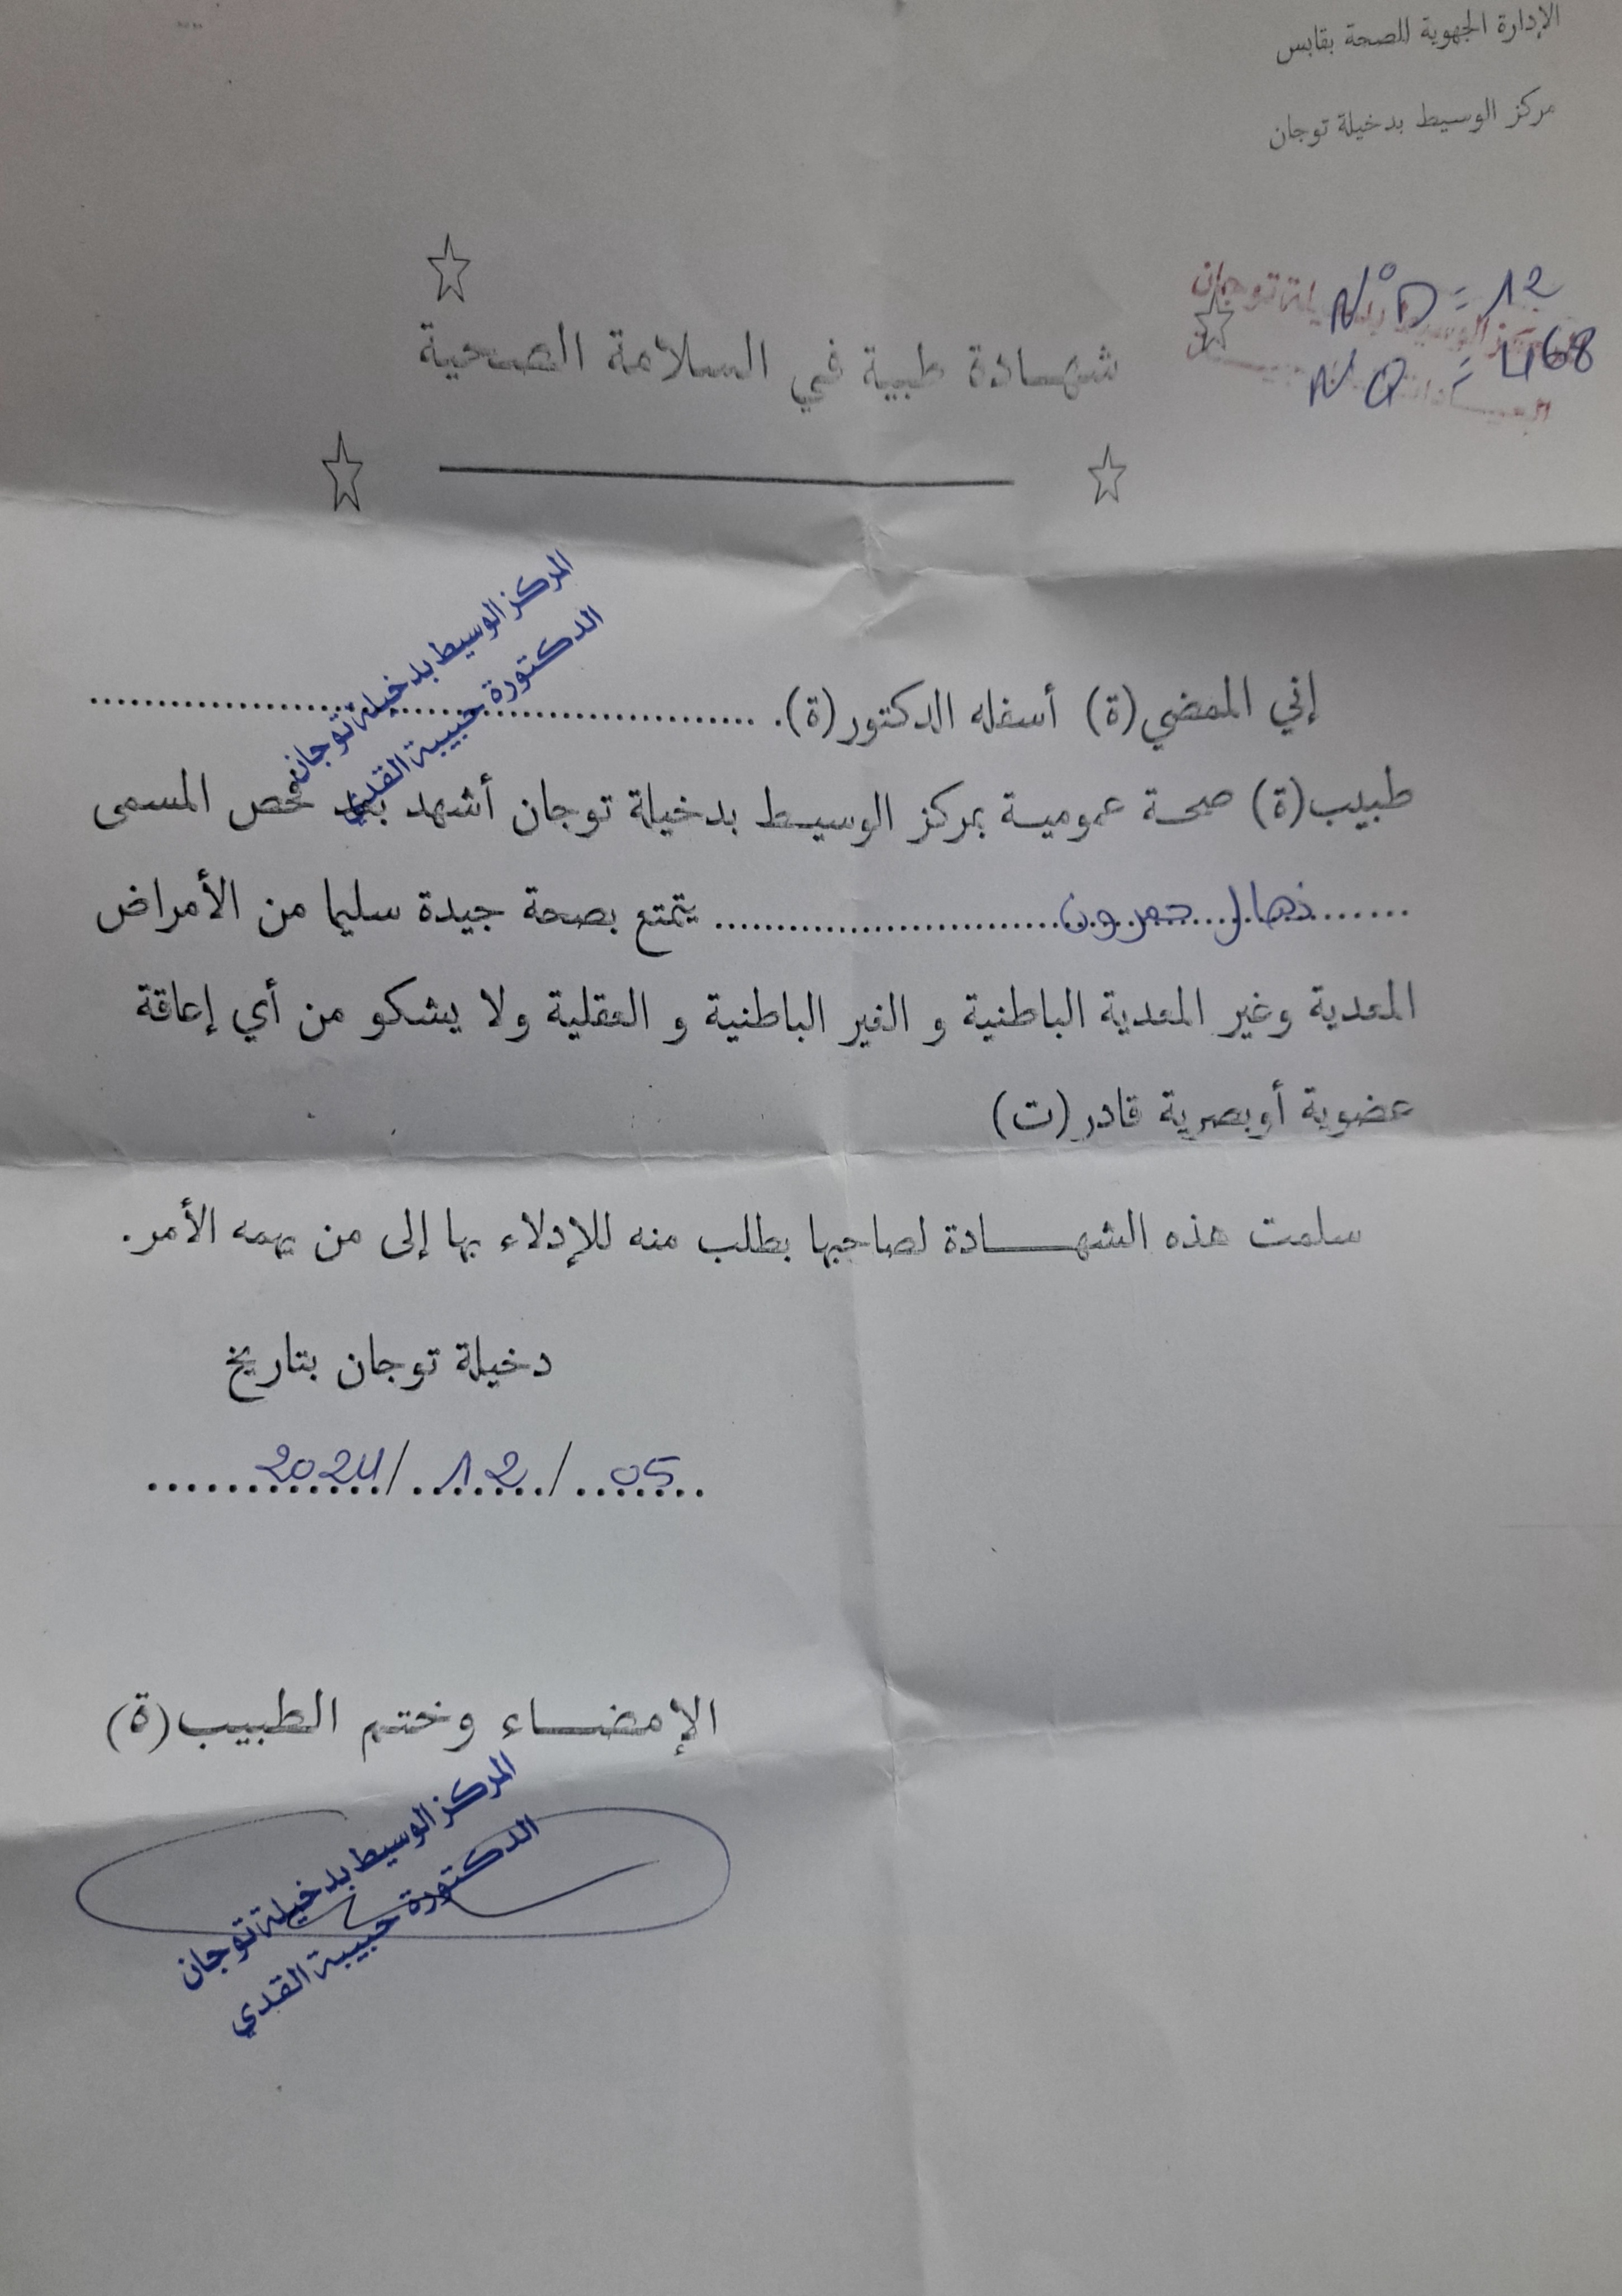 الإدارة الجهوية للصحة بقابس
مركز الوسيط بدخيلة توجان
N° D = 12
N Q = 468
شهـــادة طبية في السلامة الصحية
المركز الوسيط بدخيلة توجان
الدكتورة حبيبة القدي
إني الممضي(ة) أسفله الدكتور(ة). ..........................................................
طبيب(ة) صحـة عموميـة بمركز الوسيـط بدخيلة توجان أشهد بعد فحص المسمى
............................................ يتمتع بصحة جيدة سليما من الأمراض
المعدية وغير المعدية الباطنية و الغير الباطنية و العقلية ولا يشكو من أي إعاقة
عضوية أوبصرية قادر(ت)
سلمت هذه الشهـــــادة لصاحبها بطلب منه للإدلاء بها إلى من يهمه الأمر.
دخيلة توجان بتاريخ
05/12/2024
الإمضـــاء وختم الطبيب(ة)
المركز الوسيط بدخيلة توجان
الدكتورة حبيبة القدي